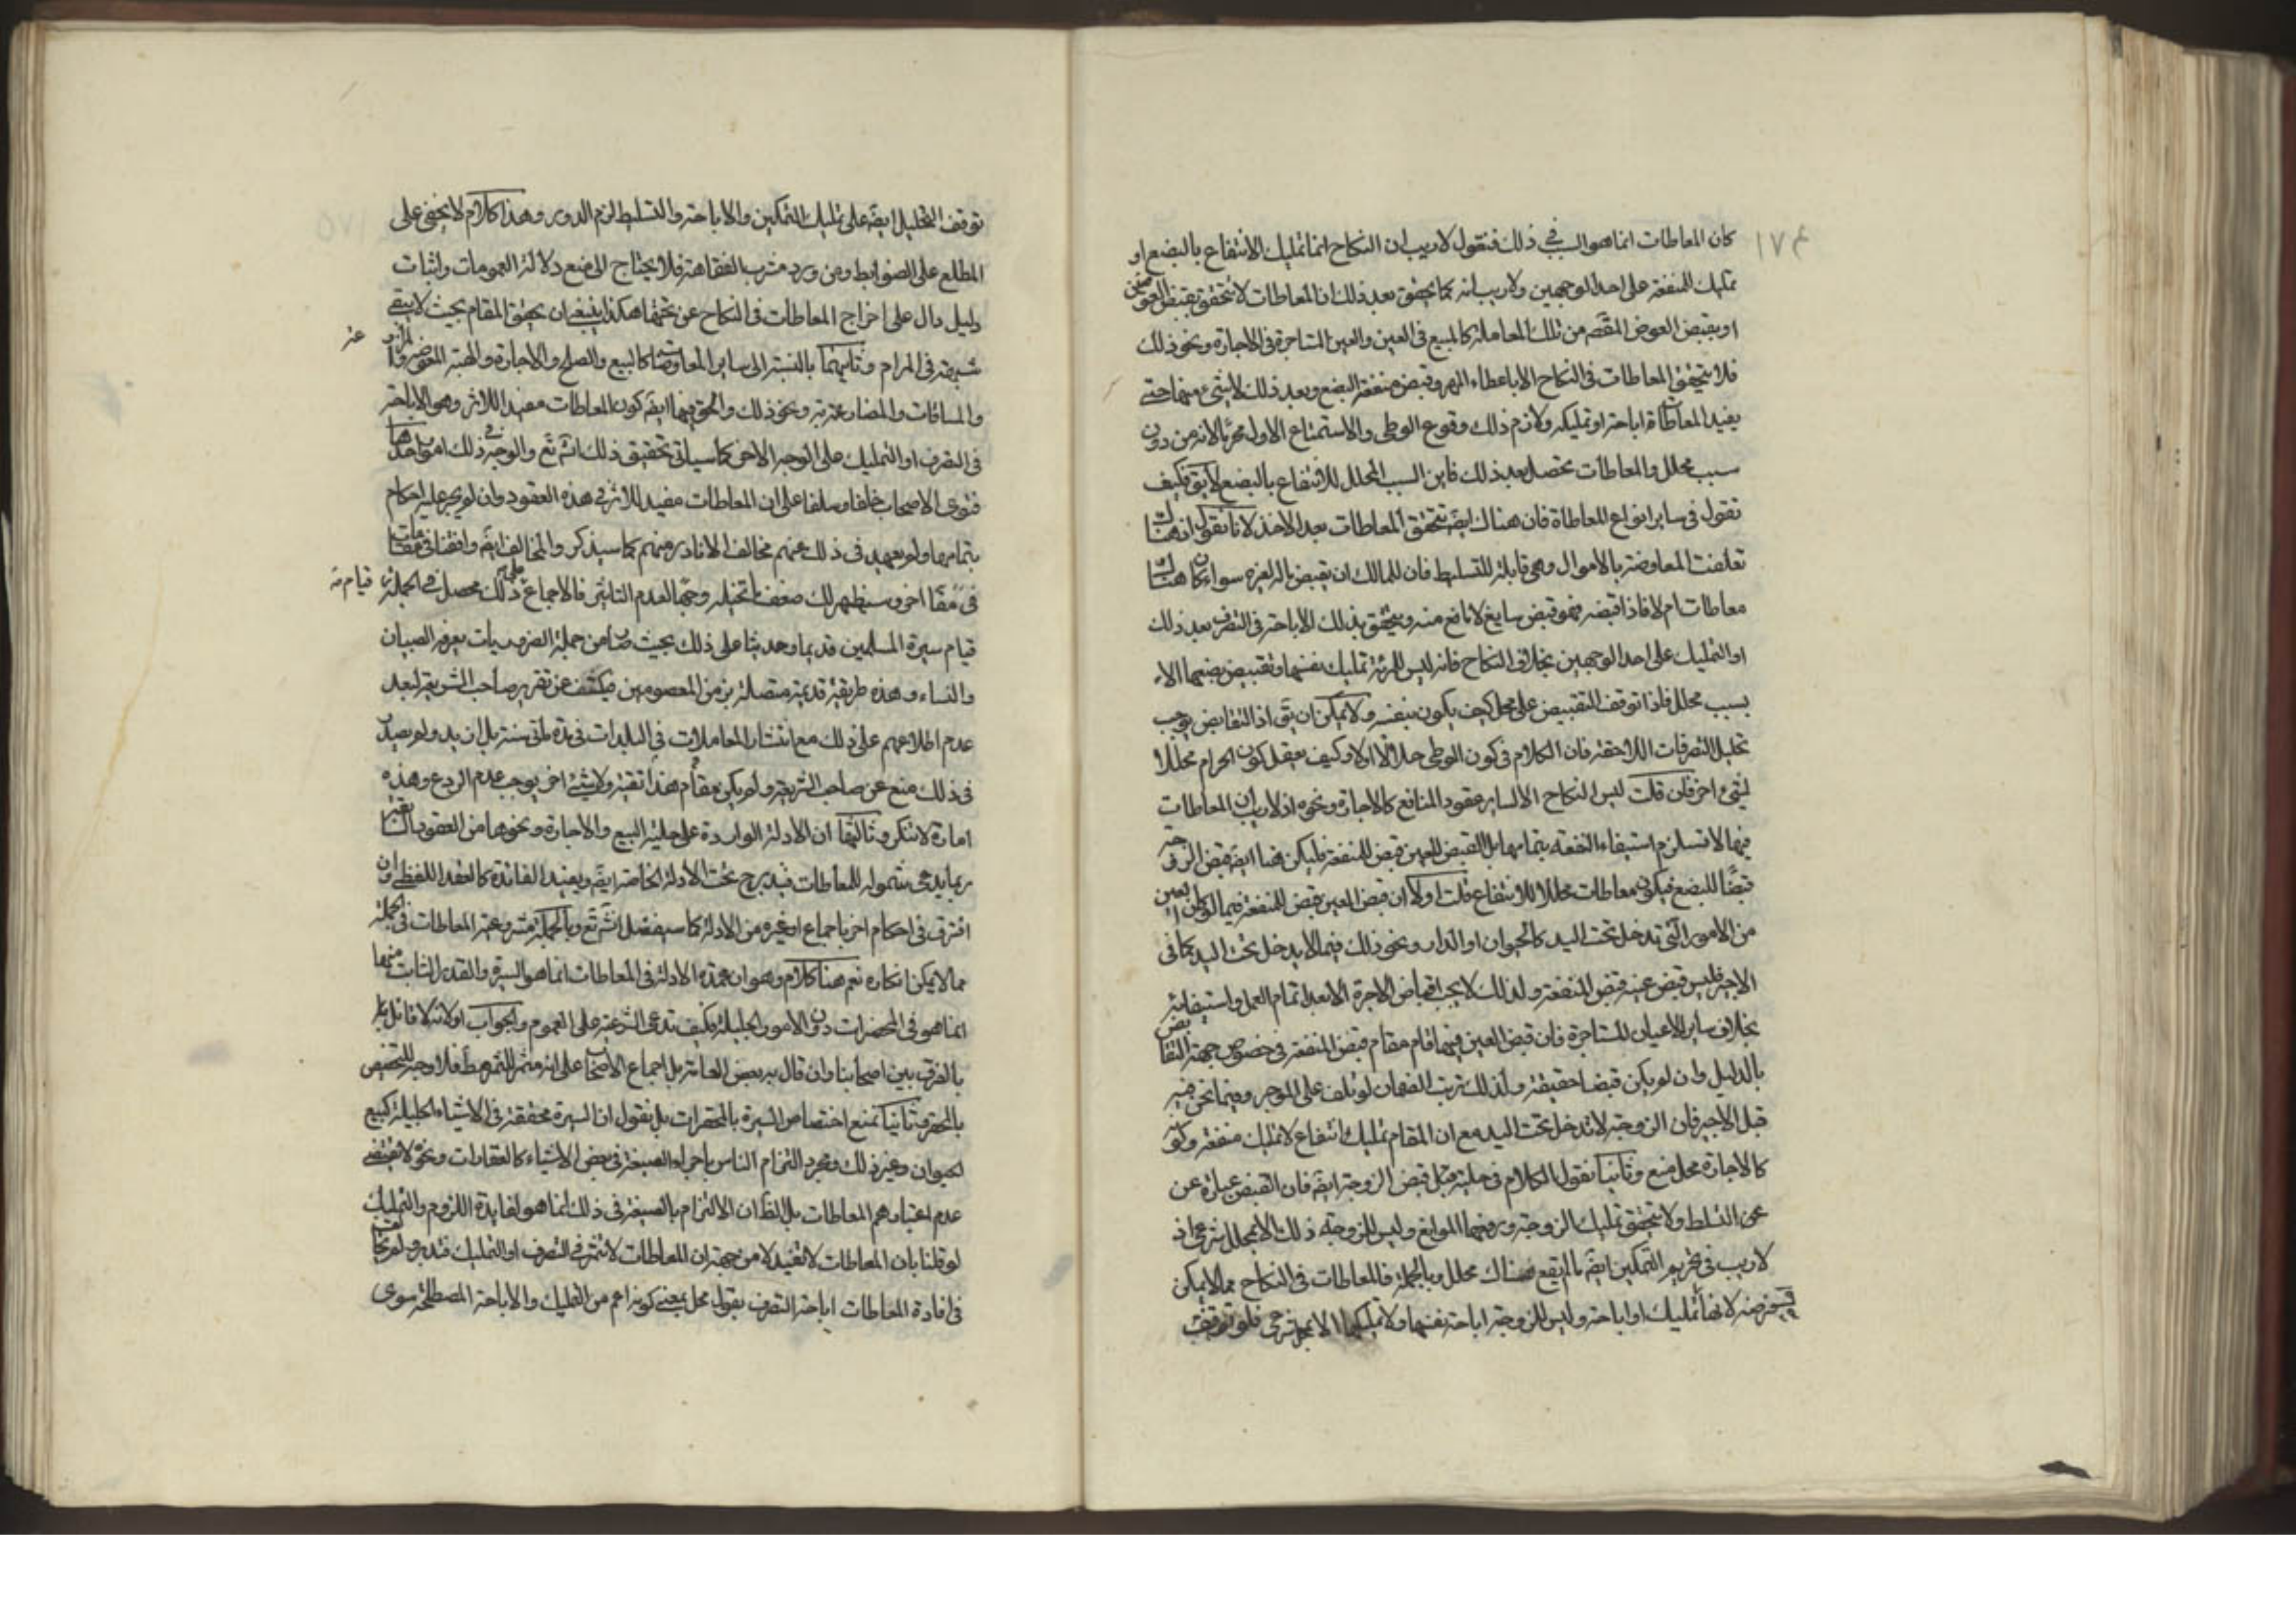 ١٧٤
كان المعاطات انما هو السبب في ذلك فنقول لا ريب ان النكاح انما تمليك الانتفاع بالبضع او
تمليك المنفعة على احد الوجهين ولا ريب انه كما يحقق بعد ذلك ان المعاطات لا تتحقق بقبض العوضين
او بقبض العوض المقصم من تلك المعاملة كالمبيع في العين والعين المستاجرة في الاجارة ونحو ذلك
فلا يتحقق المعاطات في النكاح الا باعطاء المهر وقبض منفعة البضع وبعد ذلك لا شئ منها حتى
يفيد المعاطاة اباحة او تمليكه ولازم ذلك وقوع الوطى والاستمتاع الاول محرما لانه من دون
سبب محلل والمعاطات تحصل بعد ذلك فاين السبب المحلل للانتفاع بالبضع لا يق فكيف
نقول في ساير انواع المعاطاة فان هناك ايضا تتحقق المعاطات بعد الاخذ لانا نقول ان هناك
تعلقت المعاوضة بالاموال وهي قابلة للتسليط فان للمالك ان يقبض ماله لغيره سواء كان هناك
معاطات ام لا فاذا قبضه فهو قبض سايغ لا مانع منه ويتحقق بذلك الاباحة في التصرف بعد ذلك
او التمليك على احد الوجهين بخلاف النكاح فانه ليس للمرئة تمليك نفسها وتقبيض بضعها الا
بسبب محلل فاذا توقف التقبيض على محلل كيف يكون بنفسه ولا يمكن ان يق اذا التقابض يوجب
تحليل التصرفات اللاحقة فان الكلام في كون الوطى حلالا اولا وكيف يعقل كون الحرام محللا
لشئ اخر فان قلت ليس النكاح الا كساير عقود المنافع كالاجارة ونحوه اذ لا ريب ان المعاطات
فيها لا تستلزم استيفاء المنفعة بتمامها بل القبض للعين قبض للمنفعة فليكن هنا ايضا قبض الزوجة
قبضا للبضع فيكون معاطات محللا للانتفاع قلت اولا ان قبض العين قبض للمنفعة فيما لو كان العين
من الامور التي تدخل تحت اليد كالحيوان او الدار ونحو ذلك فيما لا يدخل تحت اليد كما في
الاجير فليس قبض عينه قبض المنفعة ولذلك لا يجب اقباض الاجرة الا بعد اتمام العمل واستيفائه
بخلاف ساير الاعيان المستاجرة فان قبض العين فيها قام مقام قبض المنفعة في خصوص جهة التقابض
بالدليل وان لم يكن قبضا حقيقة ولذلك ترتب الضمان لو تلف على الموجر وفيما نحن فيه
قبل الاجير فان الزوجة لا تدخل تحت اليد مع ان المقام تمليك انتفاع لا تمليك منفعة وكونه
كالاجارة محل منع وثانيا نقول الكلام في حلية قبل قبض الزوجة ايضا فان القبض عبارة عن
عن التسلط ولا يتحقق تمليك الزوجة ورفعها الموانع وليس للزوجة ذلك الا بمحلل شرعي اذ
لا ريب في تحريم التمكين ايضا ما لم يقع هناك محلل وبالجملة فالمعاطات في النكاح مما لا يمكن
فرضه لانها تمليك او اباحة وليس للزوجة اباحة نفسها ولا تمليكها الا بمحلل شرعي فلو توقف
١٧٥
توقف التحليل ايضا على تمليك التمكين والاباحة والتسليط لزم الدور وهذا كلام لا يخفى على
المطلع على الضوابط ومن ورد مشرب الفقاهة فلا يحتاج الى منع دلالة العمومات واثبات
دليل دال على اخراج المعاطات في النكاح عن تحتها هكذا ينبغي ان يحقق المقام بحيث لا يبقى
شبهة في المرام وثانيهما بالنسبة الى ساير المعاوضات كالبيع والصلح والاجارة والهبة المعوضة والمزارعة
والمساقات والمضاربة ونحو ذلك والحق فيها ايضا كون المعاطات مفيدا للاثر وهو الاباحة
في التصرف او التمليك على الوجه الاخر كما سياتي تحقيق ذلك انش تع والوجه في ذلك امور احدها
فتوى الاصحاب خلفا وسلفا على ان المعاطات مفيد للاثر في هذه العقود وان لم يجر عليه احكام
بتمامها ولم يعهد في ذلك عنهم مخالف الا نادر منهم كما سيذكر والمخالف ايضا وافقنا في مقامات
في مقا اخر وسيظهر لك ضعف ما تخيله وجها لعدم التاثير فالاجماع على ذلك محصل في الجملة قيام
قيام سيرة المسلمين قديما وحديثا على ذلك بحيث صار من جملة الضروريات يعرفه الصبيان
والنساء وهذه طريقة قديمة متصلة بزمن المعصومين فيكشف عن تقرير صاحب الشريعة لبعد
عدم اطلاعهم على ذلك مع انتشار المعاملات في البلدان في مدة مأتي سنة بل ازيد ولم يصل
في ذلك منع عن صاحب الشريعة ولم يكن مقام هذا تقية ولا شئ اخر يوجب عدم الردع وهذه
امارة لا تنكر وثالثها ان الادلة الواردة على حلية البيع والاجارة ونحوها من العقود السابقة
ربما يدعى شموله للمعاطات فيندرج تحت الادلة الخاصة ايضا ويفيد الفائدة كالعقد اللفظي وان
افترق في احكام اخر باجماع او غيره من الادلة كما سيفصل انش تع وبالجملة مشروعية المعاطات في الجملة
مما لا يمكن انكاره نعم هنا كلام وهو ان عمدة الادلة في المعاطات انما هو السيرة والقدر الثابت منها
انما هو في المحقرات دون الامور الجليلة فكيف تدعى الشرعية على العموم والجواب اولا انه لا قائل
بالفرق بين اصحابنا وان قال به بعض العامة بل اجماع الاصحاب على انه مثمر للثمرة مط فلا وجه للتخصيص
بالمحقر وثانيا نمنع اختصاص السيرة بالمحقرات بل نقول ان السيرة محققة في الاشياء الجليلة كبيع
الحيوان وغير ذلك ومجرد التزام الناس باجراء الصيغة في بعض الاشياء كالعقارات ونحوه لا يقتضى
عدم اعتبارهم المعاطات بل الظ ان الالتزام بالصيغة في ذلك انما هو لفايدة اللزوم والتمليك
لو قلنا بان المعاطات لا تفيد لا من جهة ان المعاطات لا تثمر في التصرف او التمليك فتدبر
في افادة المعاطات اباحة التصرف بقول محل بمعنى كونه اعم من التمليك والاباحة المصطلحة سوى